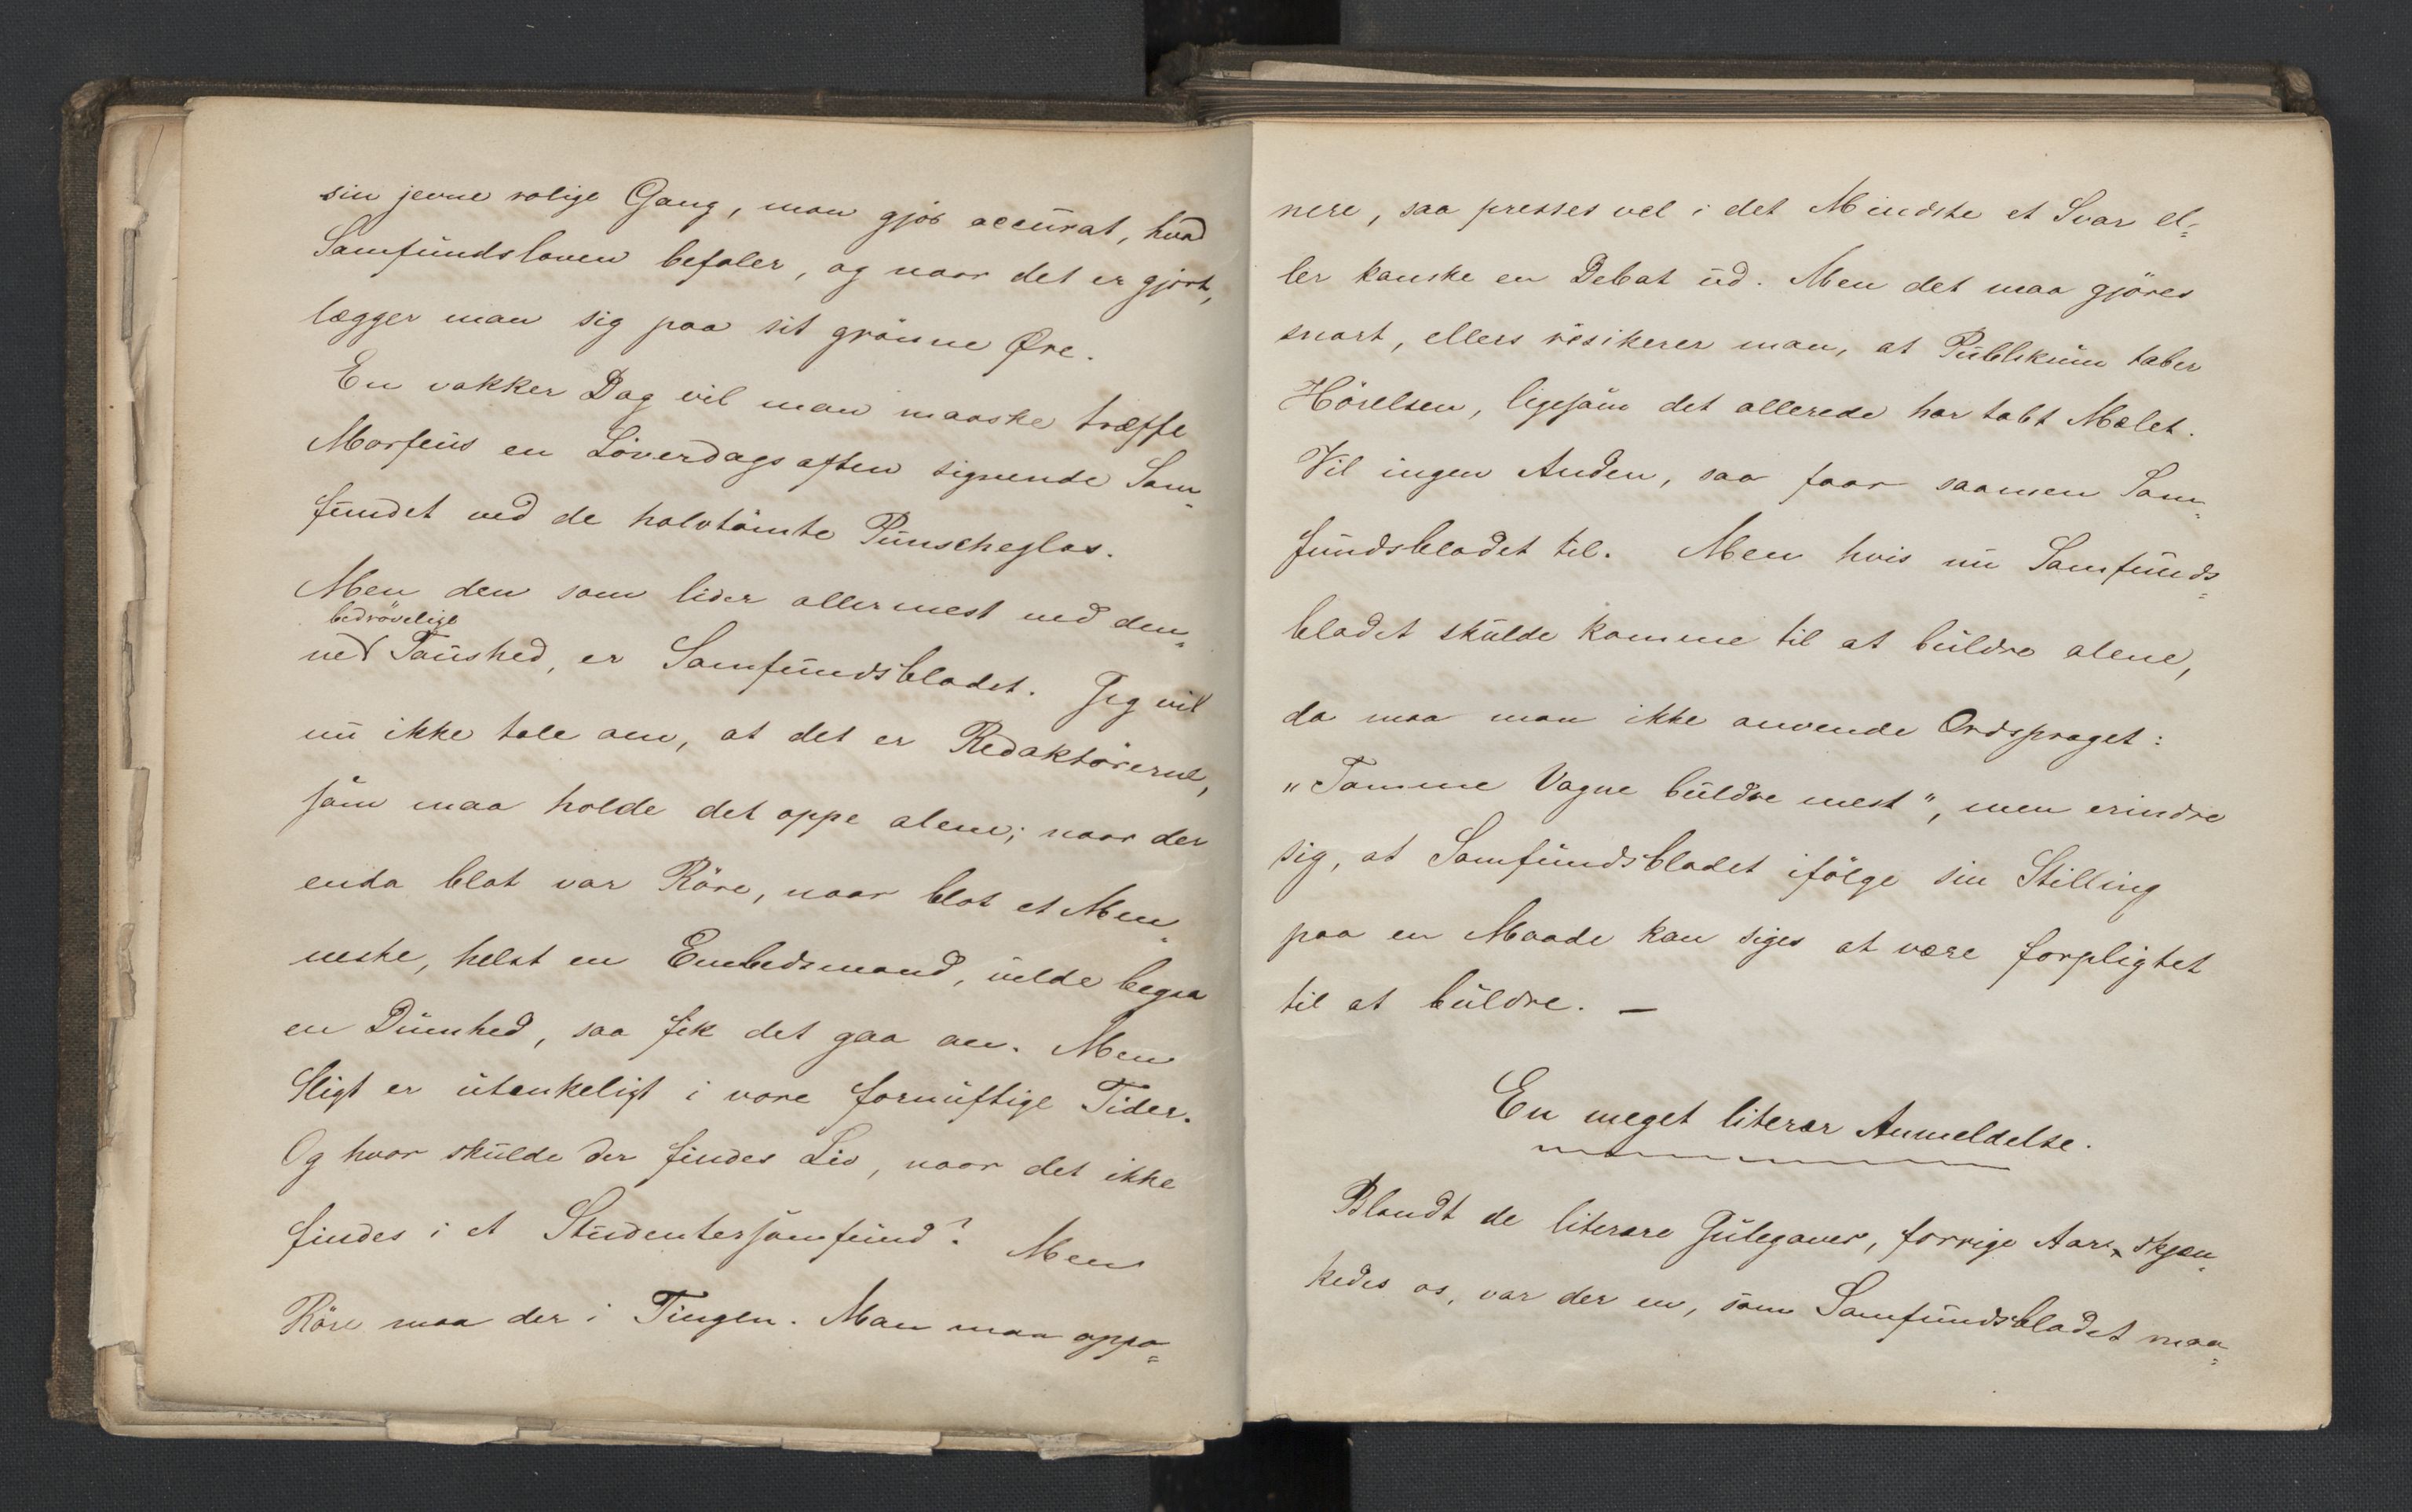 sin jevne rolige Gang, man gjør accurat, hvad
Samfundsloven befaler, og naar det er gjort,
lægger man sig paa sit grønne Øre.
En vakker Dag vil man maaske træffe
Morfeus en Løverdagsaften signende Sam=
fundet ved de halvtømte Punscheglas.
Men den som lider allermest ved den=
bedrøvelige
ne Taushed, er Samfundsbladet. Jeg vil
nu ikke tale om, at det er Redaktørerne,
som maa holde det oppe alene; naar der
enda blot var Røre, naar blot et Men=
neske, helst en Embedsmand, vilde begaa
en Dumhed, saa fik det gaa an. Men
Sligt er utænkeligt i vore fornuftige Tider.
Og hvor skulde der findes Liv, naar det ikke
findes i et Studentersamfund? Men
Røre maa der i Tingen. Man maa oppo=
nere, saa presses vel i det Mindste et Svar el=
ler kanske en Debat ud. Men det maa gjøres
snart, ellers risikerer man, at Publikum taber
Hørelsen, ligesom det allerede har tabt Mælet.
Vil ingen Anden, saa faar saamen Sam=
fundsbladet til. Men hvis nu Samfunds=
bladet skulde komme til at buldre alene,
da maa man ikke anvende Ordsproget:
"Tomme Vogne buldre mest", men erindre
sig, at Samfundsbladet ifølge sin Stilling
paa en Maade kan siges at være forpligtet
til at buldre. —
En meget literær Anmeldelse.
Blandt de literære Julegaver, forrige Aar skjæn=
kedes os, var der en, som Samfundsbladet maa=